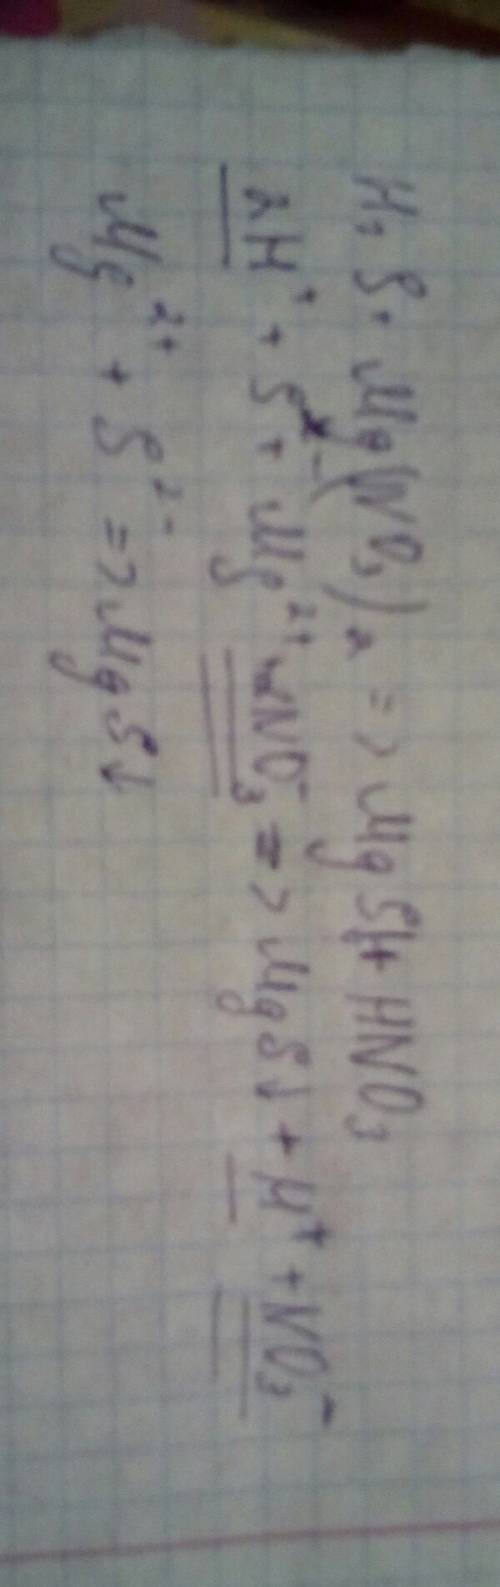 H₂S + Mg(NO₃)₂ => MgS↓ + HNO₃
2H⁺ + S²⁻ + Mg²⁺ + 2NO₃⁻ => MgS↓ + H⁺ + NO₃⁻
Mg²⁺ + S²⁻ => MgS↓